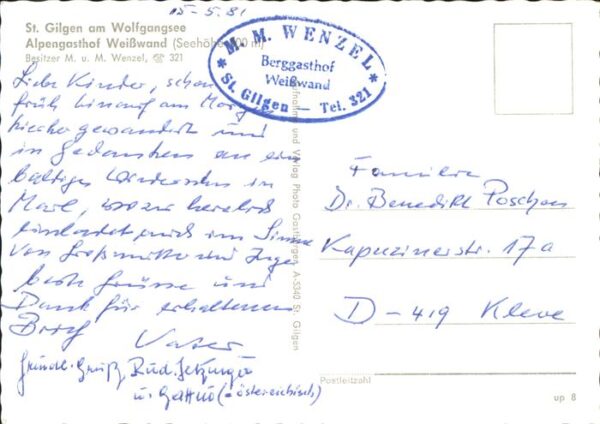 15-5.81
St. Gilgen am Wolfgangsee
Alpengasthof Weißwand (Seehöhe 00 m)
Besitzer M. u. M. Wenzel, ☏ 321
* M. M. WENZEL *
Berggasthof
Weißwand
St. Gilgen — Tel. 321
Liebe Kinder, schon
früh hinauf am Morgen
hierher gewandert und
in Gedanken an ein
baldiges Wiedersehn in
Marl, wozu herzlich
einladet auch im Sinne
von Großmutter und Inge
beste Grüsse und
Dank für erhaltenen
Brief Vater
Gruß Rud.
u. (-österreichisch)
Verlag Photo A-5340 St. Gilgen
Familie
Dr. Benedikt Poschen
Kapuzinerstr. 17a
D-419 Kleve
Postleitzahl
up 8